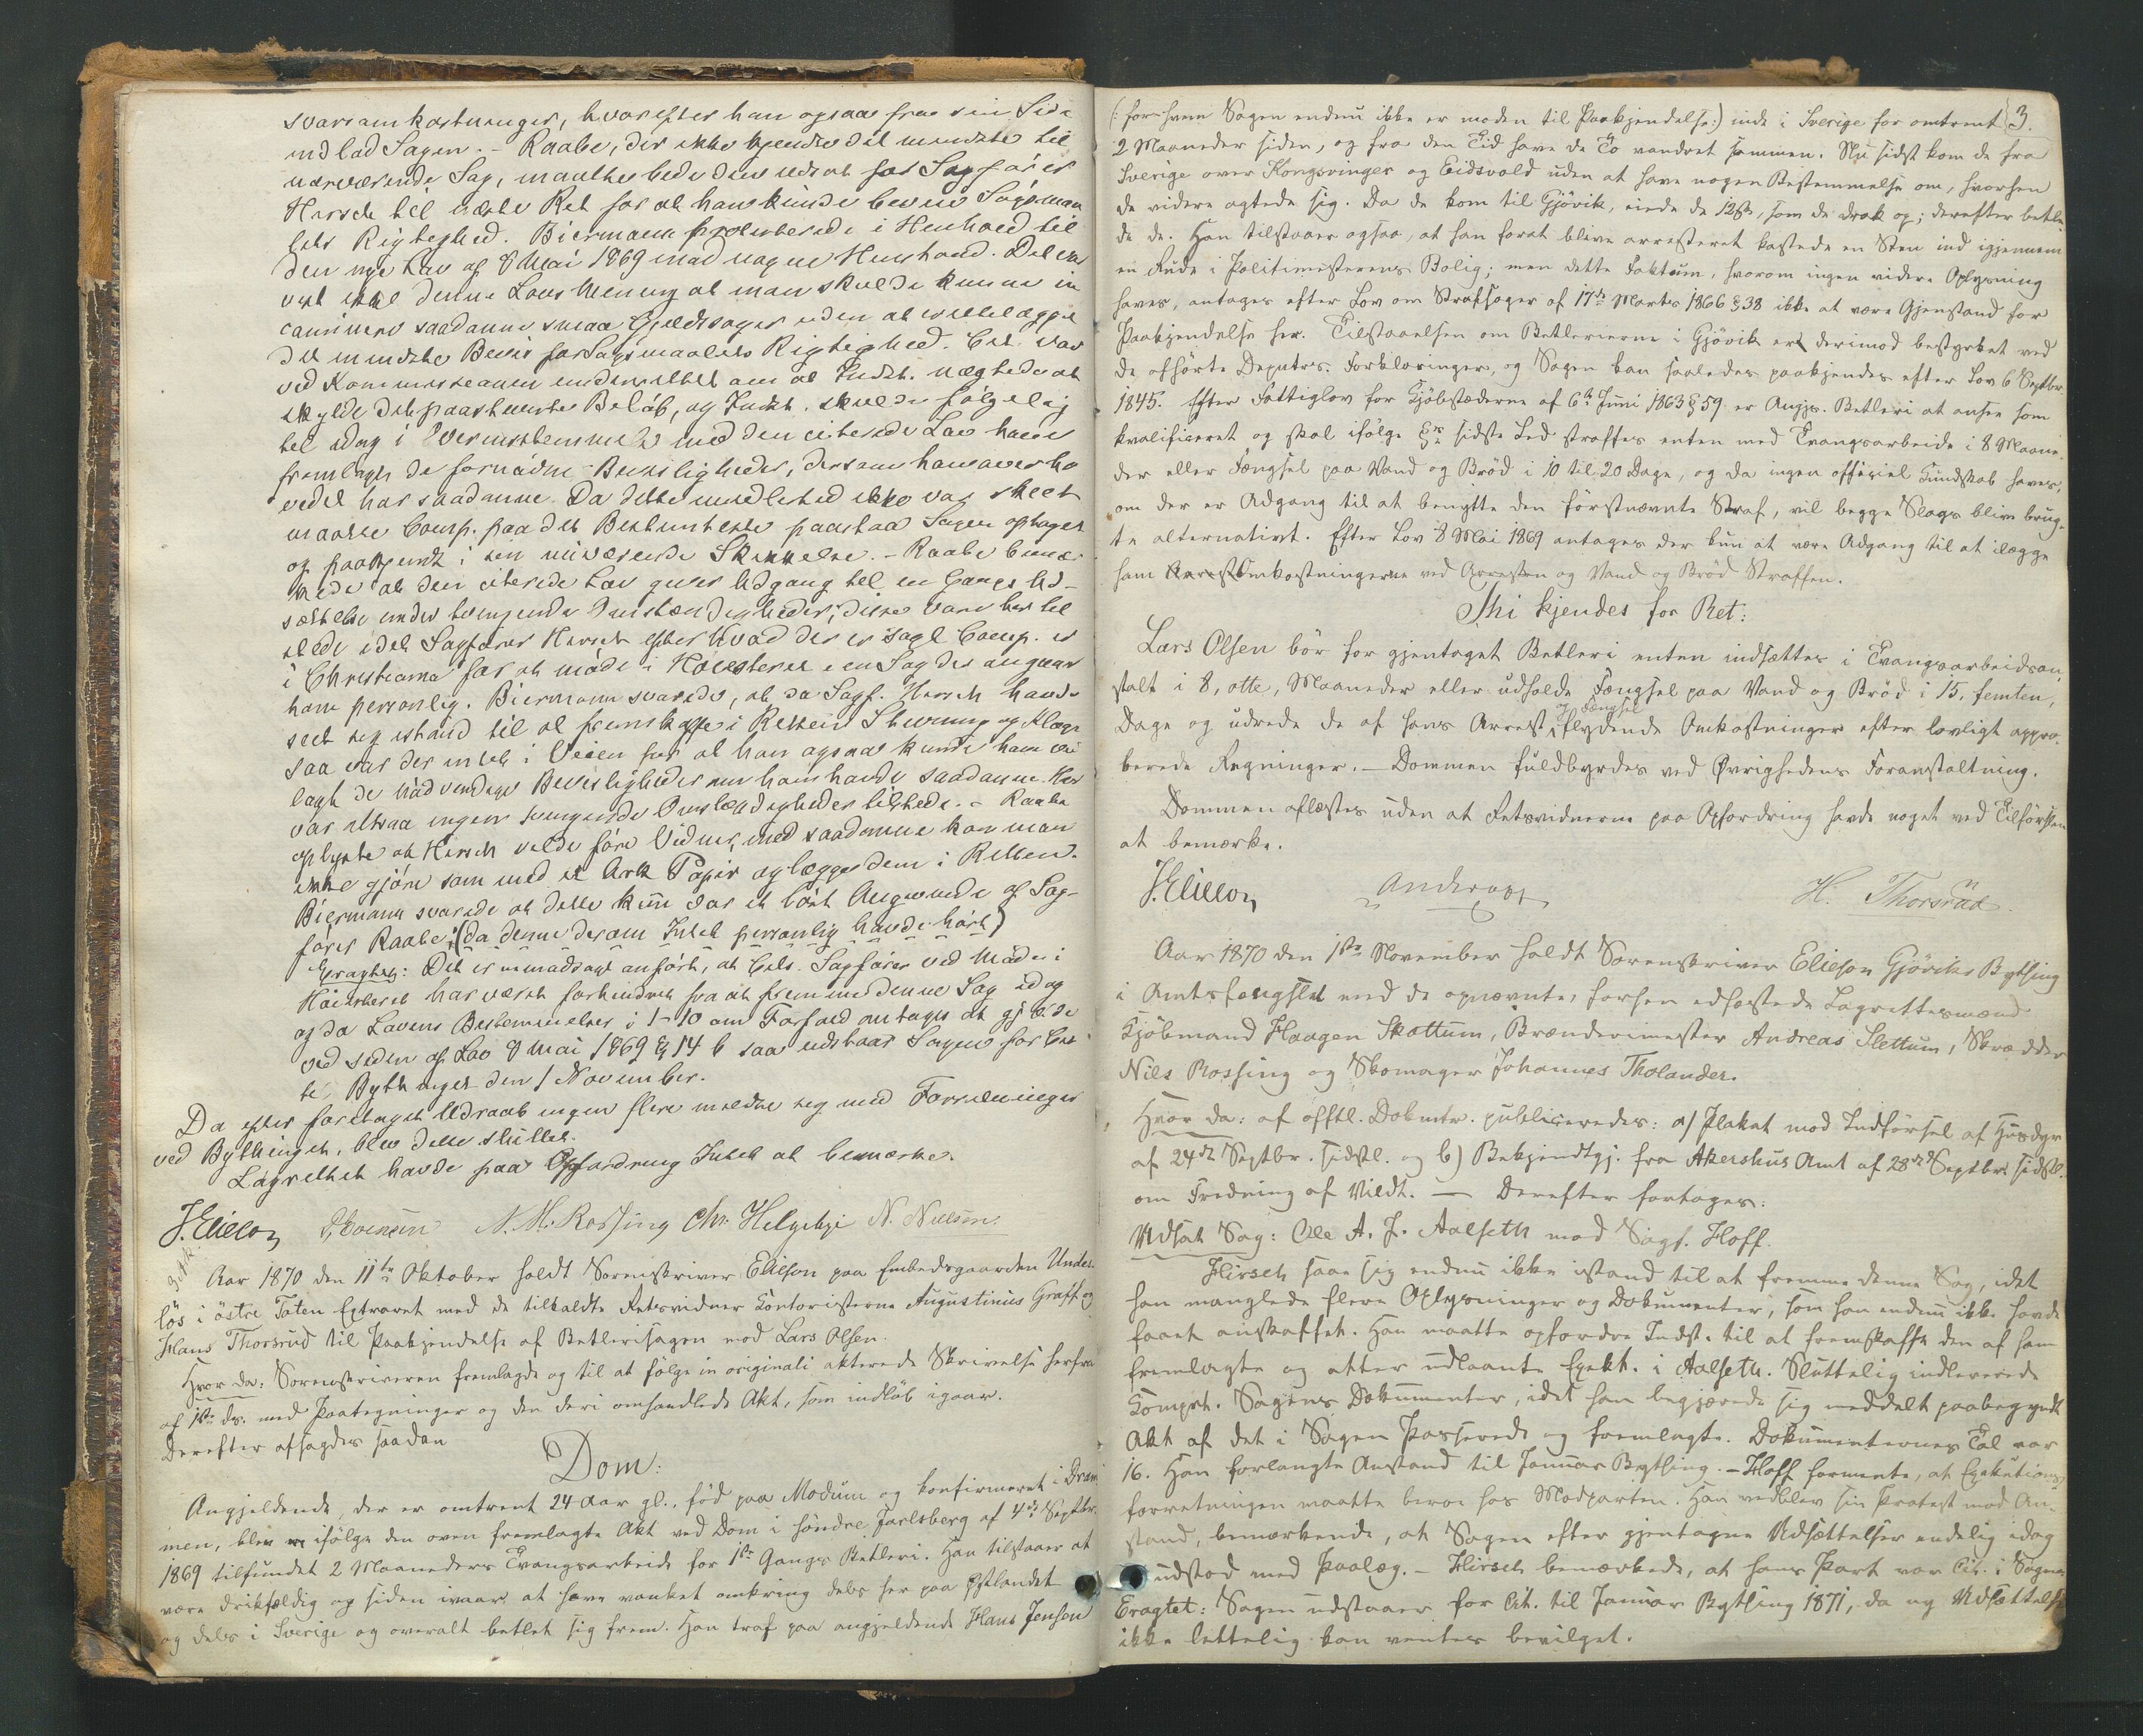 svarsomkostninger, hvorefter han ogsaa fra sin Side
indlod Sagen. - Raabe, der ikke kjendte det mindste til
nærværende Sag, maatte bede den udsat for Sagfører
Hirsch til næste Ret for at han kunde bevise Søgsmaa
lets Rigtighed. Biermann protesterede i Henhold til
den nye Lov af 8 Mai 1869 mod nogen Henstand. Det var
vist ikke denne Lovs Mening at man skulde kunne in
caminere saadanne smaa Gjeldssager uden at vedlægge
det mindste Bevis for Søgsmaalets Rigtighed. Cit. var
ved Kommissionen underrettet om at Indst. nægtede at
skylde det paastævnte Beløb, og Indst. skulde følgelig
til idag i Overensstemmelse med den citerede Lov have
fremlagt de fornødne Bevisligheder, dersom han overho
vedet har saadanne. Da dette imidlertid ikke var skeet
maatte Comp. paa det Bestemteste paastaa Sagen optaget
og paakjendt i sin nuværende Skikkelse. - Raabe bemær
kede at den citerede Lov giver Adgang til en Gangs Ud-
sættelse under tvingende Omstændigheder; disse vare her til
stede idet Sagfører Hirsch efter hvad der er sagt Comp. er
i Christiania for at møde i Høiesteret i en Sag der angaar
ham personlig. Biermann svarede, at da Sagf. Hirsch havde
seet sig istand til at fremskaffe i Retten Stevning og Klage
saa var der intet i Veien for at han ogsaa kunde have ved
lagt de nødvendige Bevisligheder om han havde saadanne. Her
var altsaa ingen tvingende Omstændigheder tilstede. - Raabe
oplyste at Hirsch vilde føre Vidner, med saadanne kan man
ikke gjøre som med et Ark Papir og lægge dem i Retten.
Biermann svarede at dette kun var et løst Angivende af Sag-
fører Raabe (da denne derom Intet personlig havde hørt)
Eragtet: Det er uimodsagt anført, at Cits. Sagfører ved Møde i
Høiesteret har været forhindret fra at fremme denne Sag idag
og da Lovens Bestemmelser i 1-10 om Forfald antages at gjælde
ved siden af Lov 8 Mai 1869 § 14 b saa udstaar Sagen for Cit
til Bythinget den 1 November.
Da efter foretaget Udraab ingen flere meldte sig med Forretninger
ved Bythinget, blev dette sluttet.
Lagrettet havde paa Opfordring Intet at bemærke.
J. Elieson N. M. Rossing Chr. Helgehje N. Nielsen
Aar 1870 den 11te Oktober holdt Sorenskriver Elieson paa Embedsgaarden Under-
løs i østre Toten Extraret med de tilkaldte Retsvidner Kontoristerne Augustinius Grøff og
Hans Thorsrud til Paakjendelse af Betlerisagen mod Lars Olsen.
Hvor da: Sorenskriveren fremlagde og til at følge in originali akterede Skrivelse herfra
af 1ste ds. med Paategninger og den deri omhandlede Akt, som indløb igaar.
Derefter afsagdes saadan
Dom:
Angjeldende, der er omtrent 24 Aar gl., fød paa Modum og konfirmeret i Dram-
men, blev ifølge den oven fremlagte Akt ved Dom i søndre Jarlsberg af 4de Septbr.
1869 tilfundet 2 Maaneders Tvangsarbeide for 1ste Gangs Betleri. Han tilstaaer at
være drikfældig og siden ivaar at have vanket omkring dels her paa Østlandet
og dels i Sverige og overalt betlet sig frem. Han traf paa angjeldende Hans Jensen
3.
(: for hvem Sagen endnu ikke er moden til Paakjendelse:) inde i Sverige for omtrent
2 Maaneder siden, og fra den Tid have de To vandret sammen. Nu sidst kom de fra
Sverige over Kongsvinger og Eidsvold uden at have nogen Bestemmelse om, hvorhen
de videre agtede sig. Da de kom til Gjøvik, eiede de 12 s, som de drak op; derefter betle-
de de. Han tilstaaer ogsaa, at han forat blive arresteret kastede en Sten ind igjennem
en Rude i Politimesterens Bolig; men dette Faktum, hvorom ingen videre Oplysning
haves, antages efter Lov om Straffesager af 17de Marts 1866 § 38 ikke at være Gjenstand for
Paakjendelse her. Tilstaaelsen om Betlerierne i Gjøvik er derimod bestyrket ved
de afhørte Deputres. Forklaringer, og Sagen kan saaledes paakjendes efter Lov 6 Septbr.
1845. Efter Fattiglov for Kjøbstæderne af 6te Juni 1863 § 59 er Angjs. Betleri at ansee som
kvalificeret og skal ifølge §ns sidste Led straffes enten med Tvangsarbeide i 8 Maane-
der eller Fængsel paa Vand og Brød i 10 til 20 Dage, og da ingen officiel Kundskab haves,
om der er Adgang til at benytte den førstnævnte Straf, vil begge Slags blive brug-
te alternativt. Efter Lov 8 Mai 1869 antages der kun at være Adgang til at ilægge
ham Omkostningerne ved Arresten og Vand og Brød Straffen.
Thi kjendes for Ret:
Lars Olsen bør for gjentaget Betleri enten indsættes i Tvangsarbeidsan-
stalt i 8, otte, Maaneder eller udholde Fængsel paa Vand og Brød i 15, femten,
og Fængsel
Dage og udrede de af hans Arrest flydende Omkostninger efter lovligt appro-
berede Regninger. - Dommen fuldbyrdes ved Øvrighedens Foranstaltning.
Dommen oplæstes uden at Retsvidnerne paa Opfordring havde noget ved Tilførslen
at bemærke.
J. Elieson H. Thorsrud.
Aar 1870 den 1ste November holdt Sorenskriver Elieson Gjøviks Bything
i Amtsfængslet med de opnævnte, forhen edfæstede Lagrettesmænd
Kjøbmand Haagen Skattum, Brænderimester Andreas Slettum, Skrædder
Niels Rossing og Skomager Johannes Tholander.
Hvor da: af offtl. Dokmtr. publiceredes: a) Plakat mod Indførsel af Husdyr
af 24de Septbr. sidstl. og b) Bekjendtgj. fra Akershus Amt af 28de Septbr. sidstl.
om Fredning af Vildt. — Derefter foretages:
Udsat Sag: Ole A. J. Aalseth mod Sagf. Hoff.
Hirsch saae sig endnu ikke istand til at fremme denne Sag, idet
han manglede flere Oplysninger og Dokumenter, som han endnu ikke havde
faaet anskaffet. Han maatte opfordre Indst. til at fremskaffe den af ham
fremlagte og atter udlaante Exekt. i Aalseth. Sluttelig indleverede
Kompt. Sagens Dokumenter, idet han begjærede sig meddelt paabegyndt
Akt af det i Sagen Passerede og fremlagte. Dokumenternes Tal var
16. Han forlangte Anstand til Januar Bything. - Hoff formente, at Exekutions-
forretningen maatte beroe hos Modparten. Han vedblev sin Protest mod An-
stand, bemærkende, at Sagen efter gjentagne Udsættelser endelig idag
udstod med Paalæg. - Hirsch bemærkede, at hans Part var Cit. i Sagen.
Eragtet: Sagen udstaaer for Cit. til Januar Bything 1871, da ny Udsættelse
ikke lettelig kan ventes bevilget.